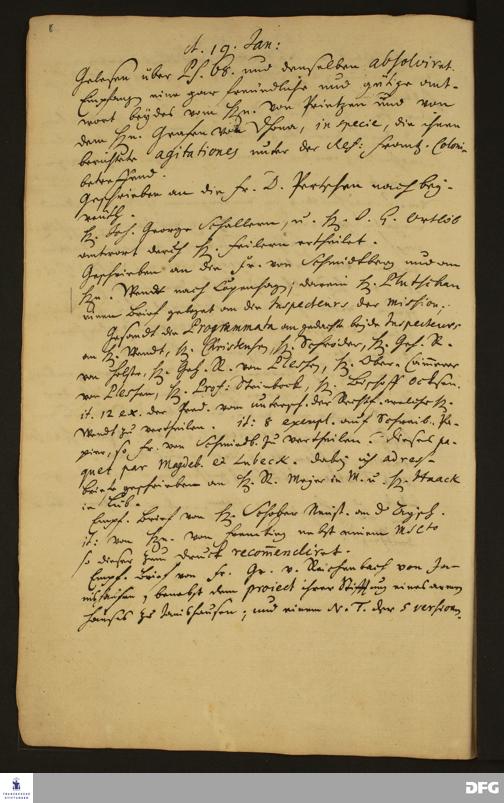 8
d. 19. Jan:
Gelesen über Ps. 68. und denselben absolviret.
Empfang eine gar freundliche und gütige ant-
wort beydes vom Hn. von Printzen und von
dem Hn. Grafen von Dhona, in specie, die ihnen
berichtete agitationes unter der Ref: Frantz. Coloni-
betreffend.
Geschrieben an die Fr. D. Petersen nach Bey-
reuth.
H. Joh. George Schallern, u. H. D. G. Ortlob
antwort durch H. Freilern ertheilet.
Geschrieben an die Fr. von Schmidtberg und an
Hn. Wendt nach Copenhagen, darein H. Plutschau
einen Brief geleget an die Inspecteurs der Mission;
Gesandt die Programmata an gedachte beide Inspecteurs
an H. Wendt, H. Christensen, H. Schröder, H. Geh. R.
von Holste, H. Geh. R. von Plessen, H. Ober-Camerer
von Plessen, H. Prof: Steinbock, H. Bischoff
it. 12 ex. der Pred. vom untersch. der Rechtf. welche H.
Wendt zu vertheilen. it: 8 exempl. auf Schreib-Pa-
pier, so Fr. von Schmiedb. zu vertheilen. Dieses pa-
quet par Magdeb. et Lubeck. dabey ich adress-
briefe geschrieben an H. R. Meyer in M. u. H. Haack
in Lüb.
Empf. Brief von H.
it: von Hn. von nebst einem Mscto
so dieser zum Druck recommendiret.
Empf. Brief von Fr. Gr. v. Reichenbach von Ja-
nishausen, benebst dem project ihrer Stifftung eines armen
Hauses zu Janishausen; und einem N. T. der 5 version.
FRANCKESCHE STIFTUNGEN
DFG